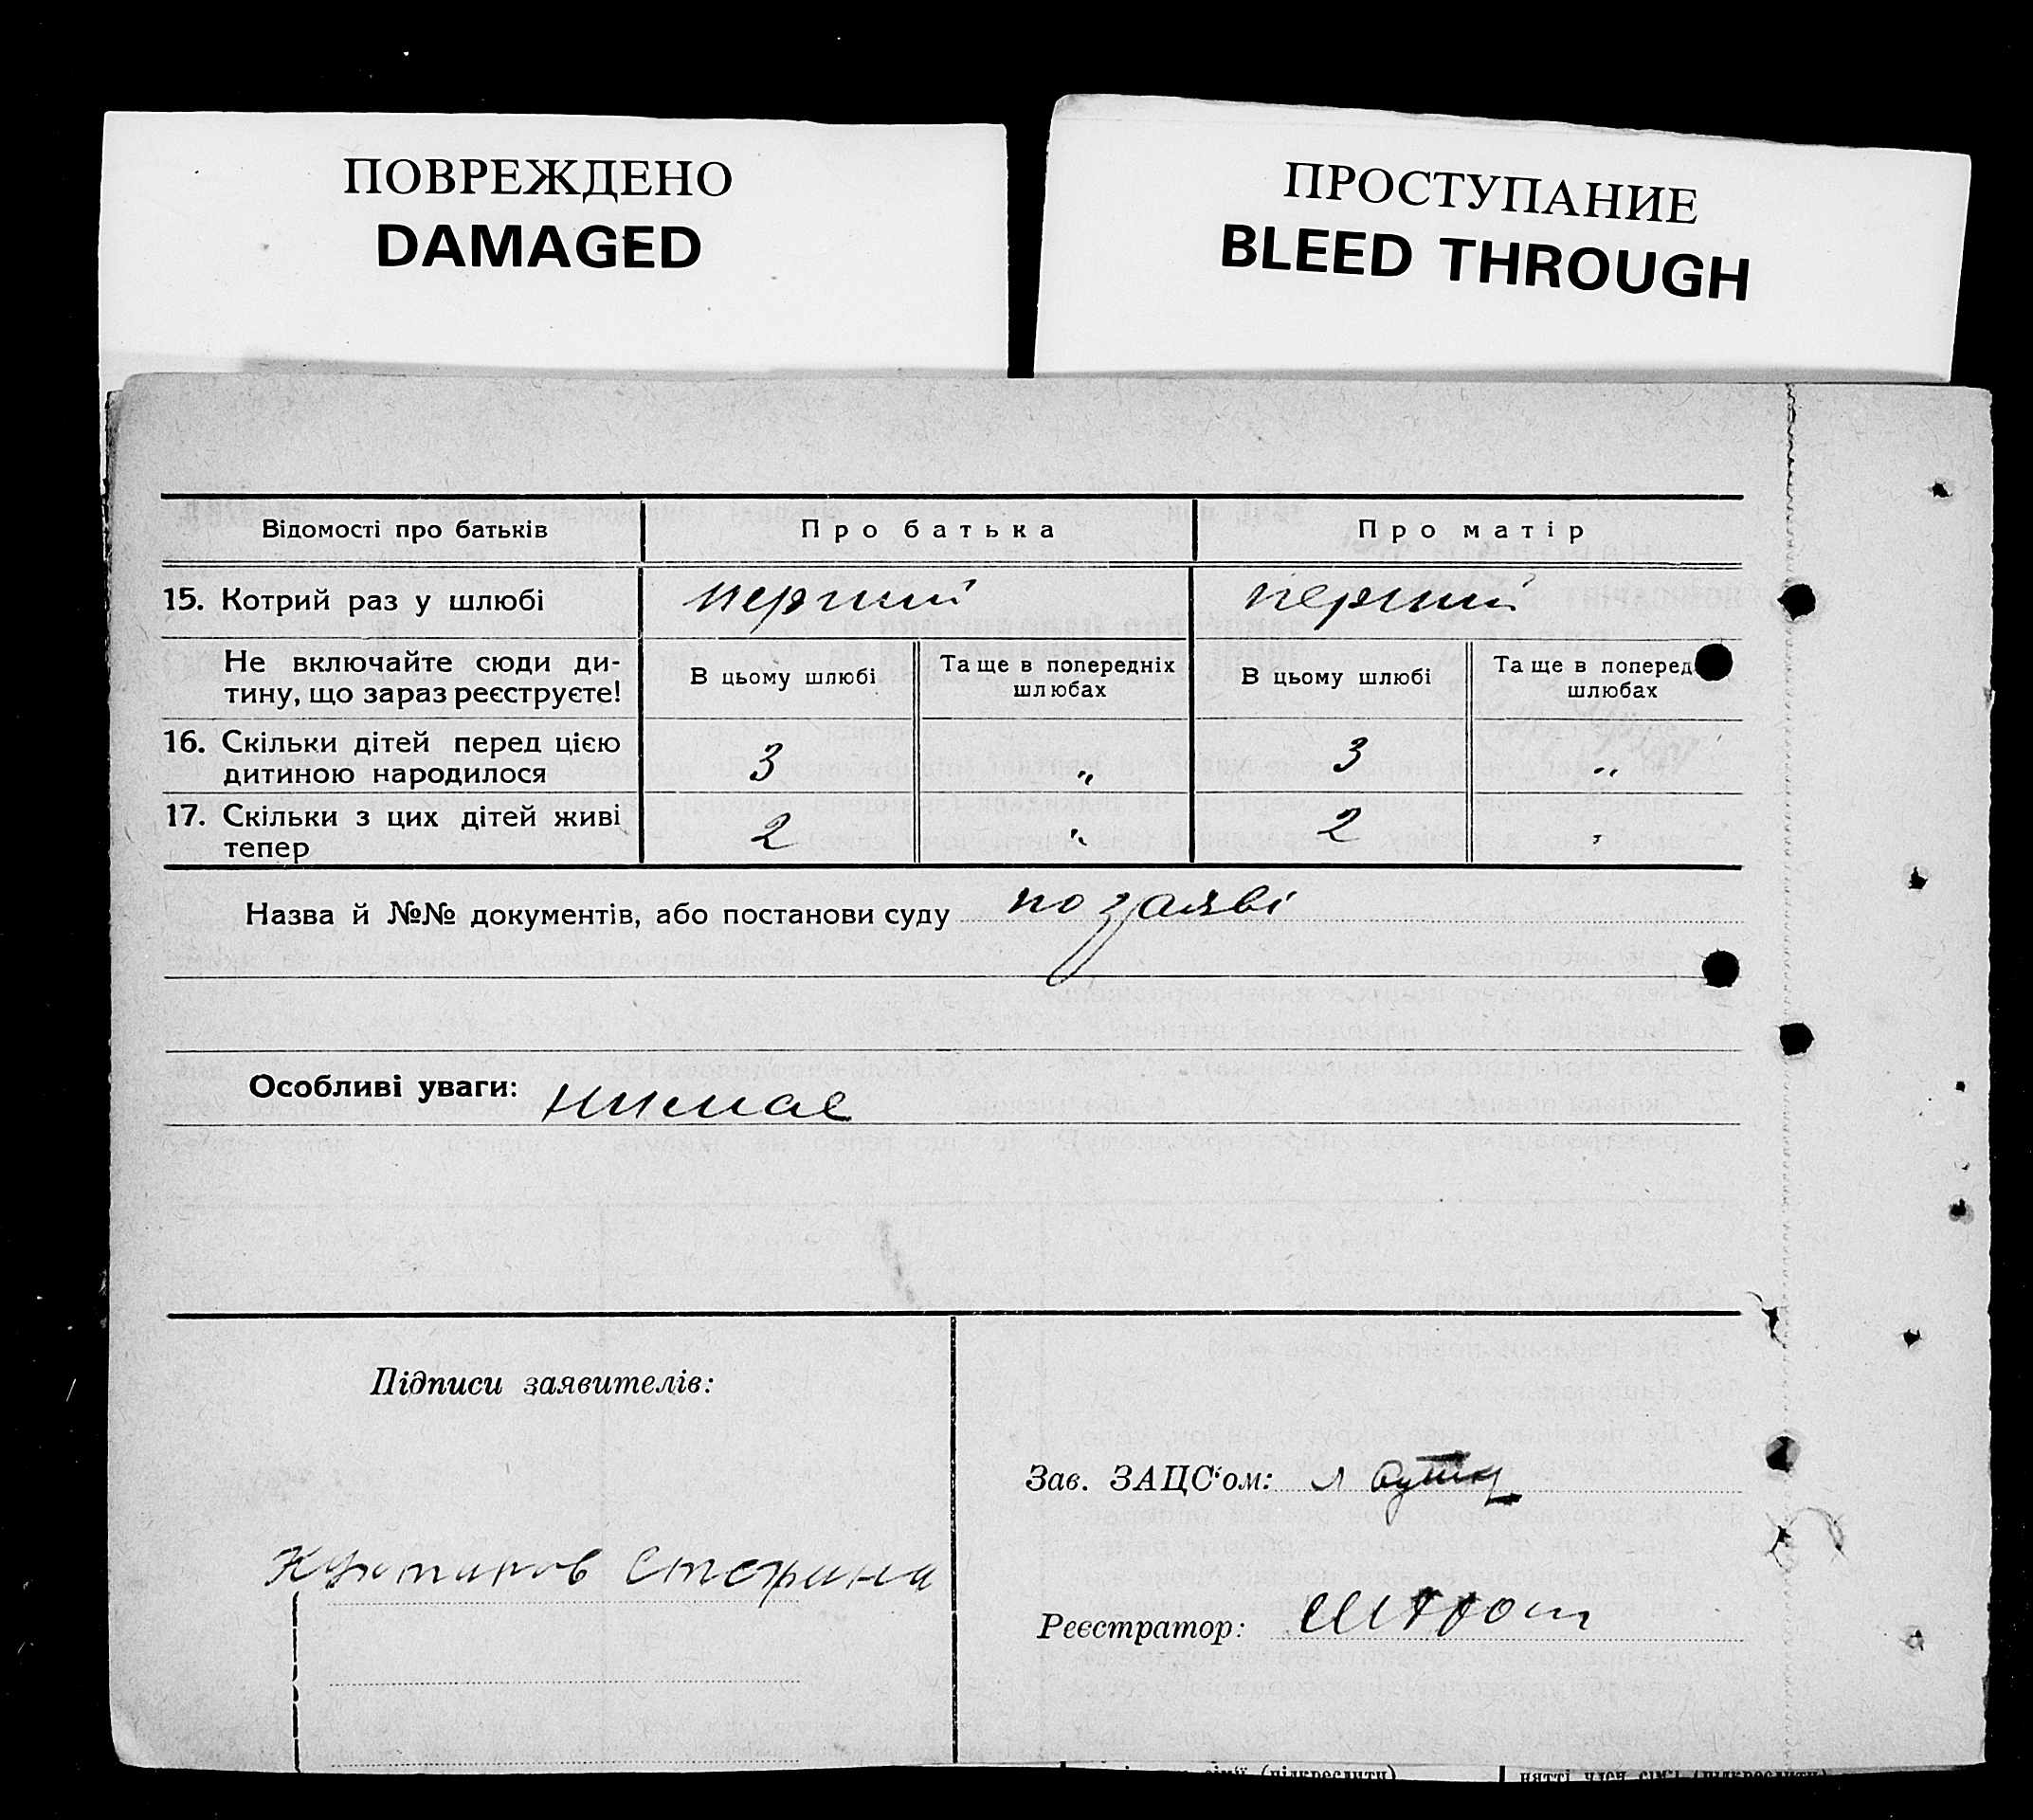 ПОВРЕЖДЕНО
DAMAGED
ПРОСТУПАНИЕ
BLEED THROUGH
Відомості про батьків
Про батька
Про матір
15. Котрий раз у шлюбі
перший
перший
Не включайте сюди ди-
тину, що зараз реєструєте!
В цьому шлюбі
Та ще в попередніх
шлюбах
В цьому шлюбі
Та ще в поперед
шлюбах
16. Скільки дітей перед цією
дитиною народилося
3
„
3
„
17. Скільки з цих дітей живі
тепер
2
„
2
„
Назва й №№ документів, або постанови суду
по заяві
Особливі уваги:
нимає
Підписи заявителів:
Зав. ЗАЦС'ом:
Реєстратор:
(підкреслити)
нятті член сім'ї (підкреслити)